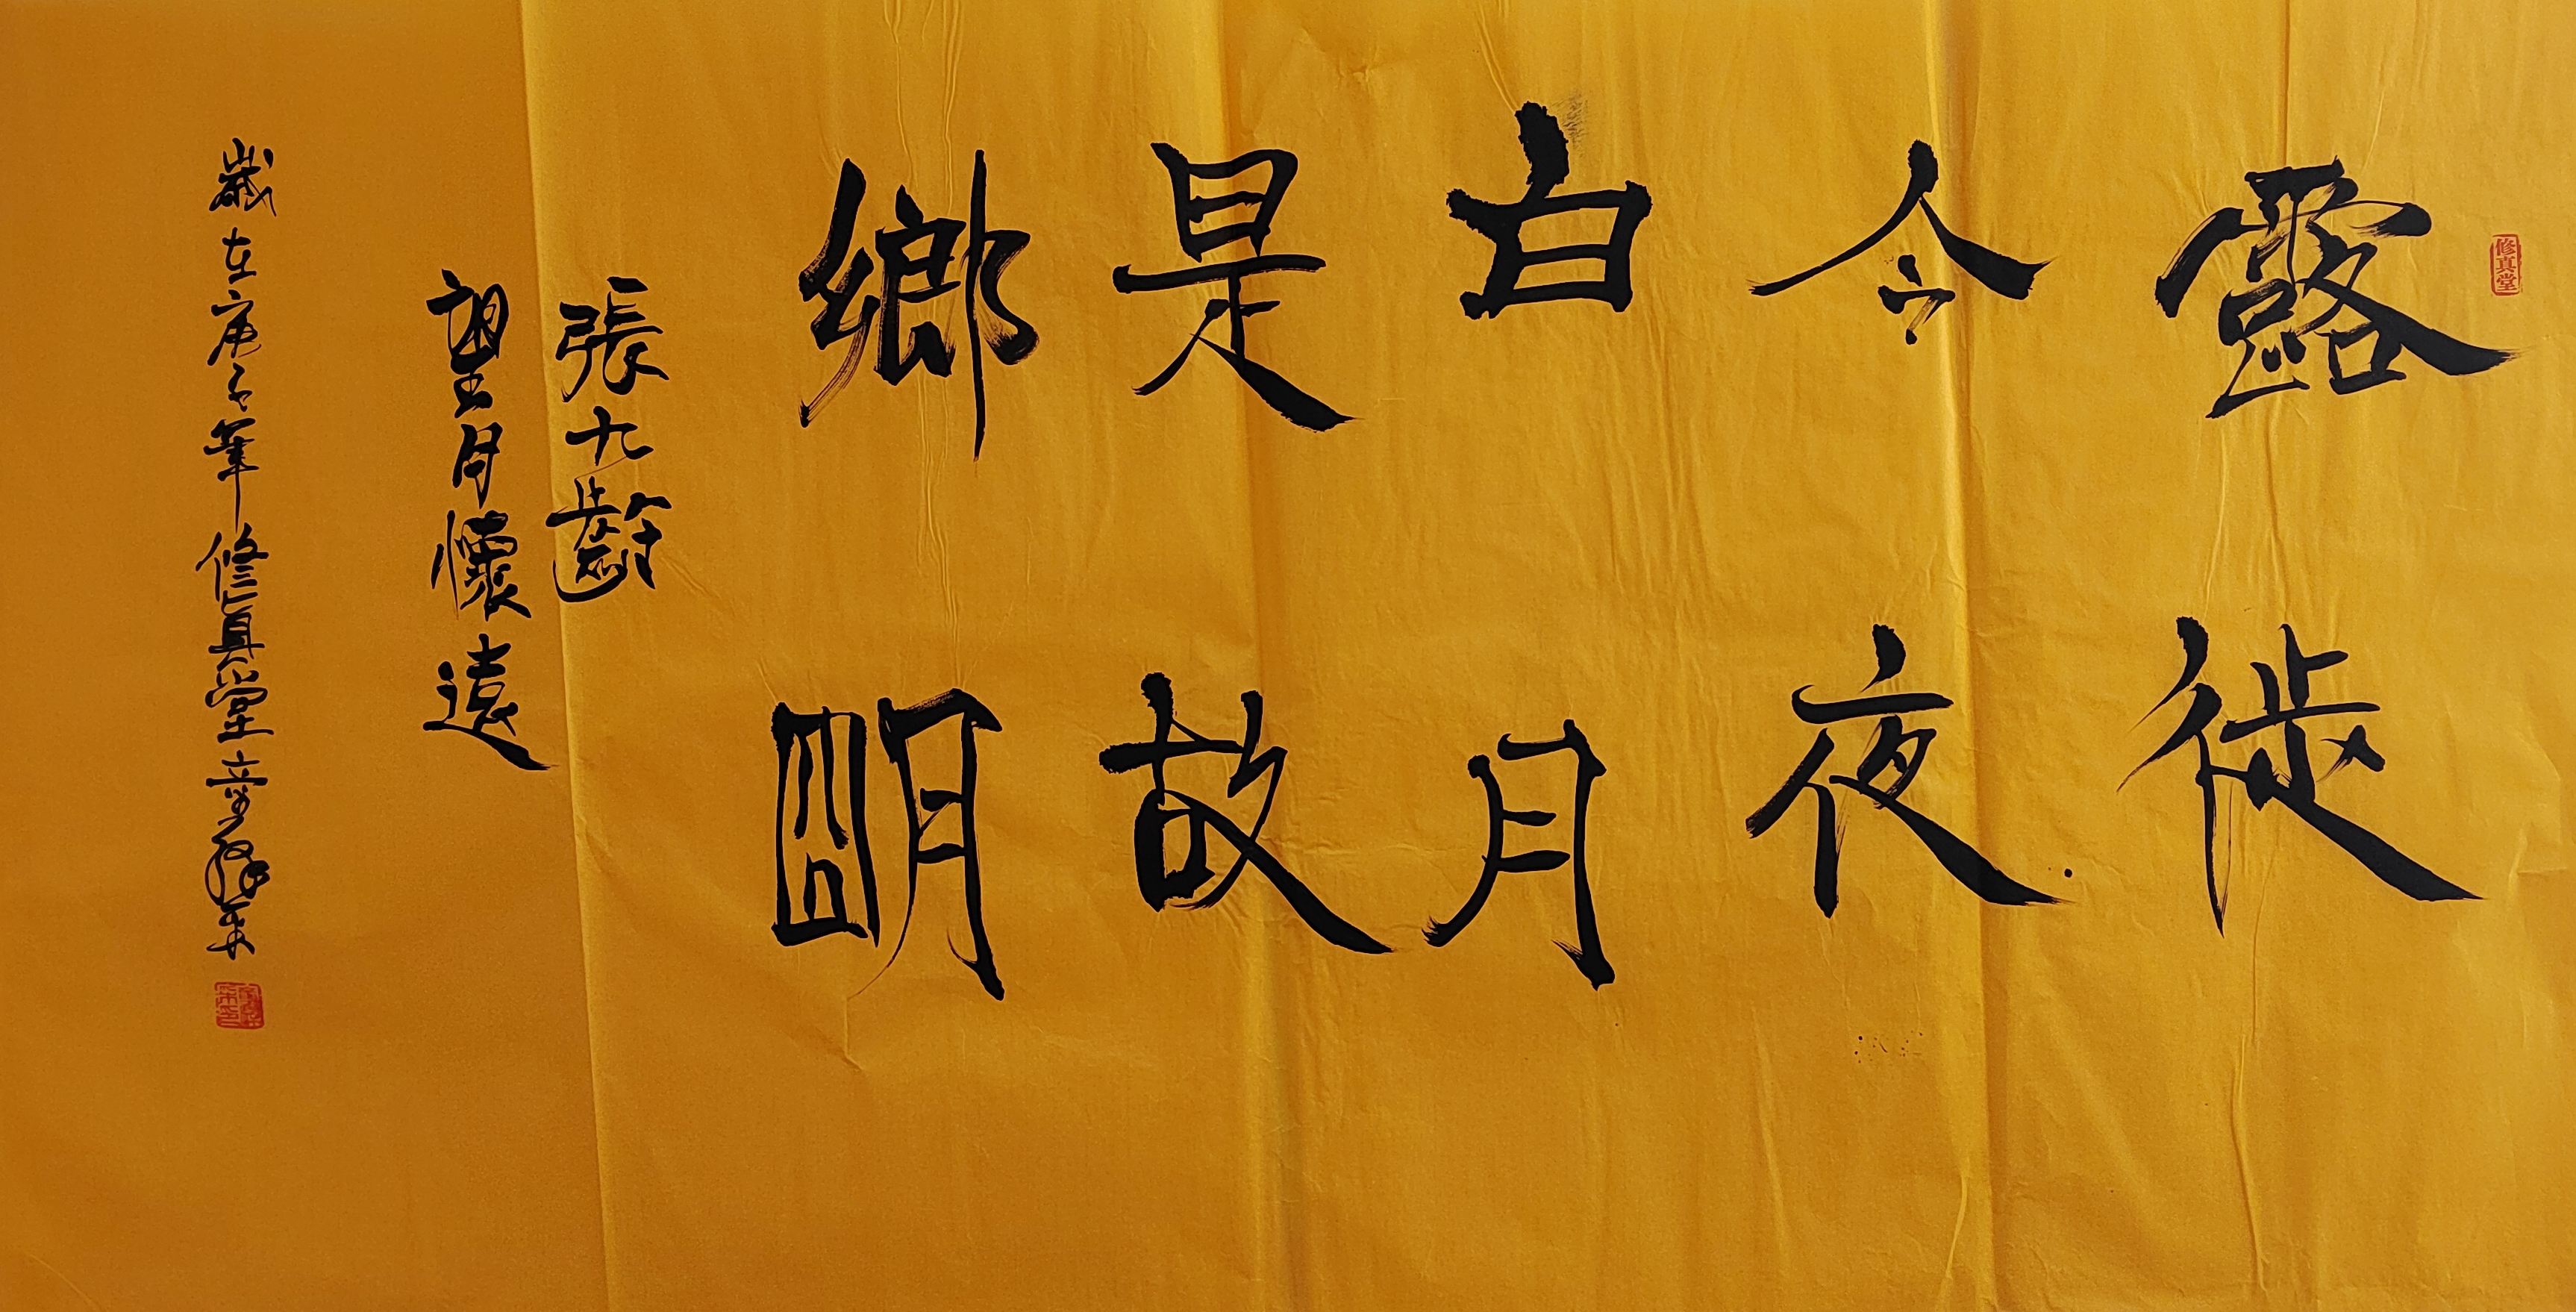 修真堂
露從
今夜
白月
是故
鄉明
張九齡
望月懷遠
歲在庚子年修真堂